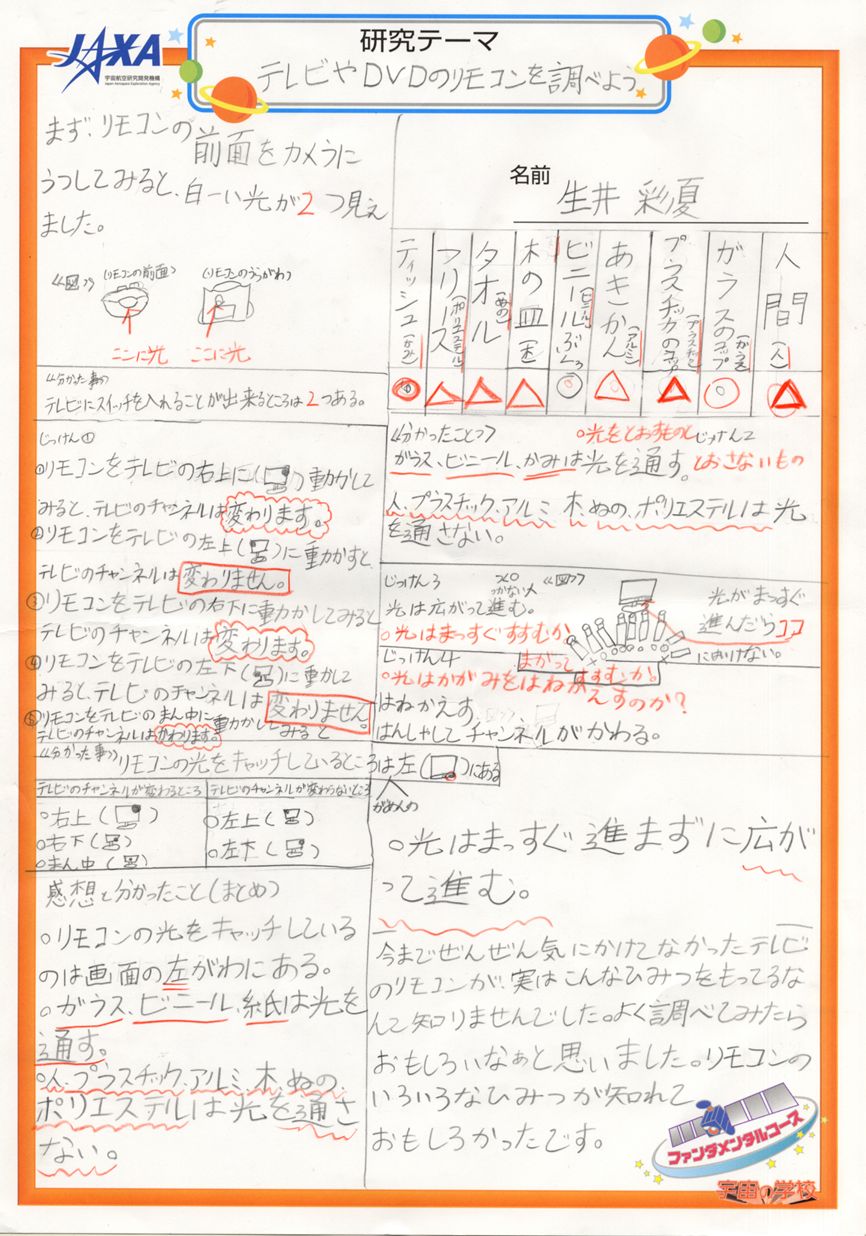 JAXA
宇宙航空研究開発機構
Japan Aerospace Exploration Agency
研究テーマ
テレビやDVDのリモコンを調べよう
まず、リモコンの前面をカメラに
うつしてみると、白一い光が2つ見え
ました。
《図》
(リモコンの前面)
(リモコンのうらがわ)
ここに光
ここに光
《分かった事》
テレビにスイッチを入れることが出来るところは2つある。
名前
生井 彩夏
ティッシュ(かみ)
フリース(ポリエステル)
タオル(ぬの)
木の皿(木)
ビニールぶくろ(ビニール)
あきかん(アルミ)
プラスチックの(プラスチック)
ガラスのコップ(ガラス)
人間(人)
じっけん①
①リモコンをテレビの右上に()動かして
みると、テレビのチャンネルは変わります。
②リモコンをテレビの左上()に動かすと、
テレビのチャンネルは変わりません。
③リモコンをテレビの右下に動かしてみると
テレビのチャンネルは変わります。
④リモコンをテレビの左下()に動かして
みると、テレビのチャンネルは変わりません。
⑤リモコンをテレビのまん中に動かしてみると
テレビのチャンネルはかわります。
《分かった事》リモコンの光をキャッチしているところは左()にある
がめんの
《分かったこと》
○光をとおすものと
じっけん2
ガラス、ビニール、かみは光を通す。
とおさないもの
人、プラスチック、アルミ、木、ぬの、ポリエステルは光
を通さない。
じっけん3
《図》
光は広がって進む。
○光はまっすぐすすむか
まがってすすむか。
光がまっすぐ
進んだらココ
にしかいけない。
じっけん4
○光はかがみをはねかえすのか?
はねかえす。
はんしゃしてチャンネルがかわる。
テレビのチャンネルが変わるところ
テレビのチャンネルが変わらないところ
○右上()
○左上()
○右下()
○左下()
○まん中()
○光はまっすぐ進まずに広が
って進む。
感想と分かったこと(まとめ)
○リモコンの光をキャッチしている
のは画面の左がわにある。
○ガラス、ビニール、紙は光を
通す。
○人、プラスチック、アルミ、木、ぬの、
ポリエステルは光を通さ
ない。
今までぜんぜん気にかけてなかったテレビ
のリモコンが、実はこんなひみつをもってるな
んて知りませんでした。よく調べてみたら
おもしろいなぁと思いました。リモコンの
いろいろなひみつが知れて
おもしろかったです。
ファンダメンタルコース
宇宙の学校